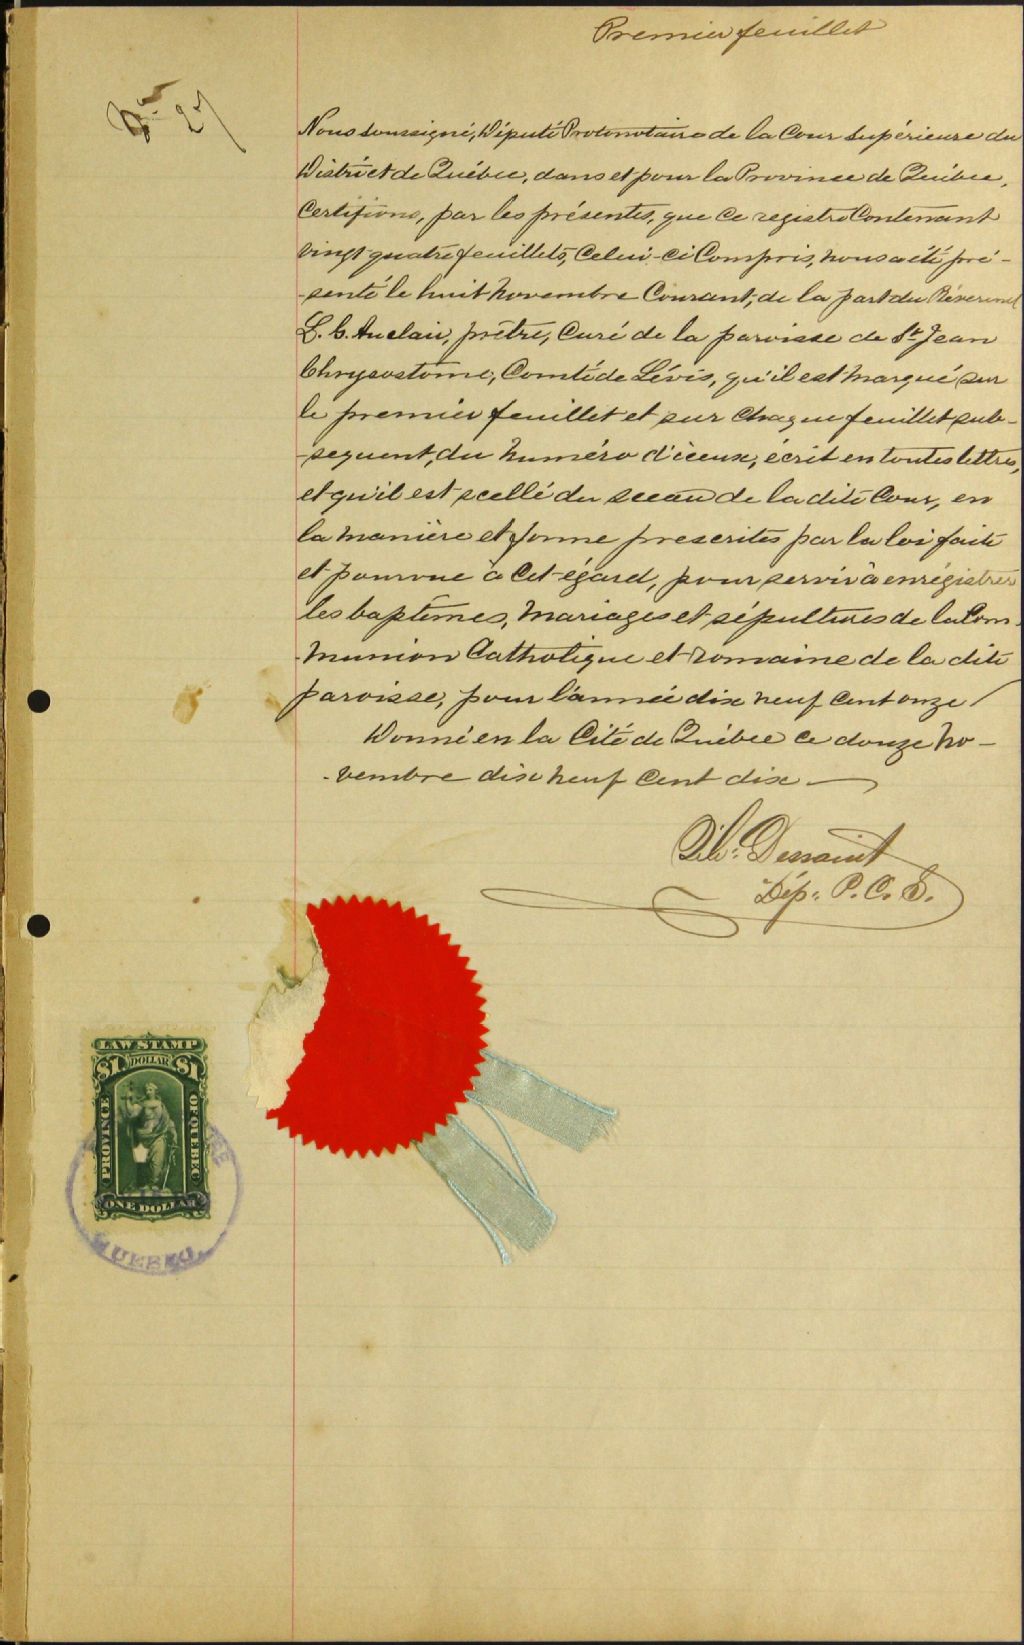 Premier feuillet
Nous soussigné, Député Protonotaire de la Cour Supérieure du
District de Québec, dans et pour la Province de Québec,
Certifions, par les présentes, que ce registre Contenant
vingt quatre feuillets, Celui-ci Compris, nous a été pré-
-senté le huit novembre Courant, de la part du Révérend
L. C. Auclair, prêtre, Curé de la paroisse de St. Jean
Chrysostome, Comté de Lévis, qu'il est marqué sur
le premier feuillet et sur chaque feuillet sub-
-sequent, du numéro d'iceux, écrit en toutes lettres,
et qu'il est scellé du sceau de la dite Cour, en
la manière et forme prescrites par la loi faite
et pourvue à cet égard, pour servir à enrégistrer
les baptêmes, mariages et sépultures de la Com-
-munion Catholique et romaine de la dite
paroisse, pour l'année dix neuf cent onze /
Donné en la Cité de Québec ce douze no-
-vembre dix neuf cent dix —
Dessaint
Dép. P. C. S.
LAW STAMP
$1 DOLLAR $1
PROVINCE OF QUEBEC
ONE DOLLAR
QUEBEC